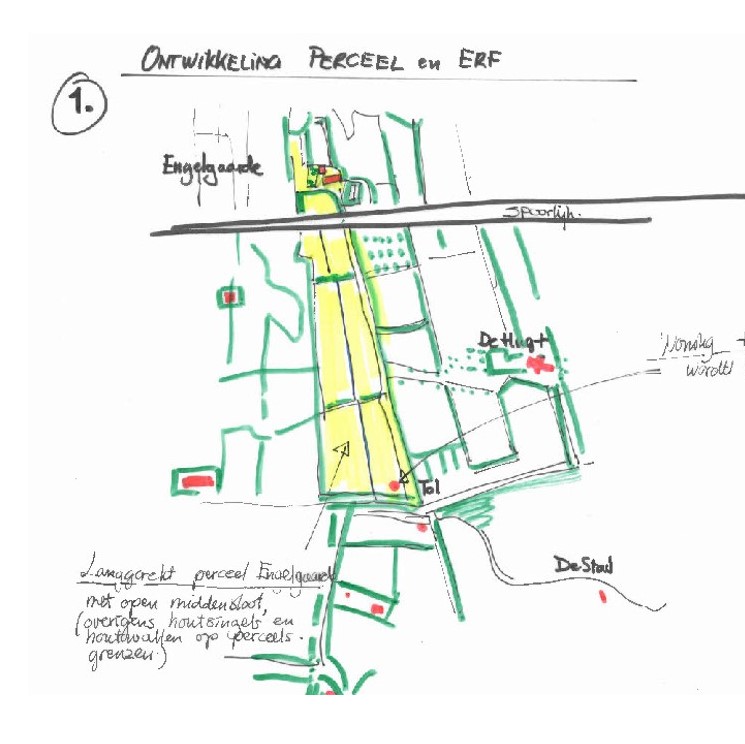 ONTWIKKELING PERCEEL en ERF
1.
Engelgaarde
Spoorlijn.
De Hugt
Woning +
wordt
Tol
De Stoel
Langgerekt perceel Engelgaarde
met open middensloot,
(overigens houtsingels en
houtwallen op perceels-
grenzen.)